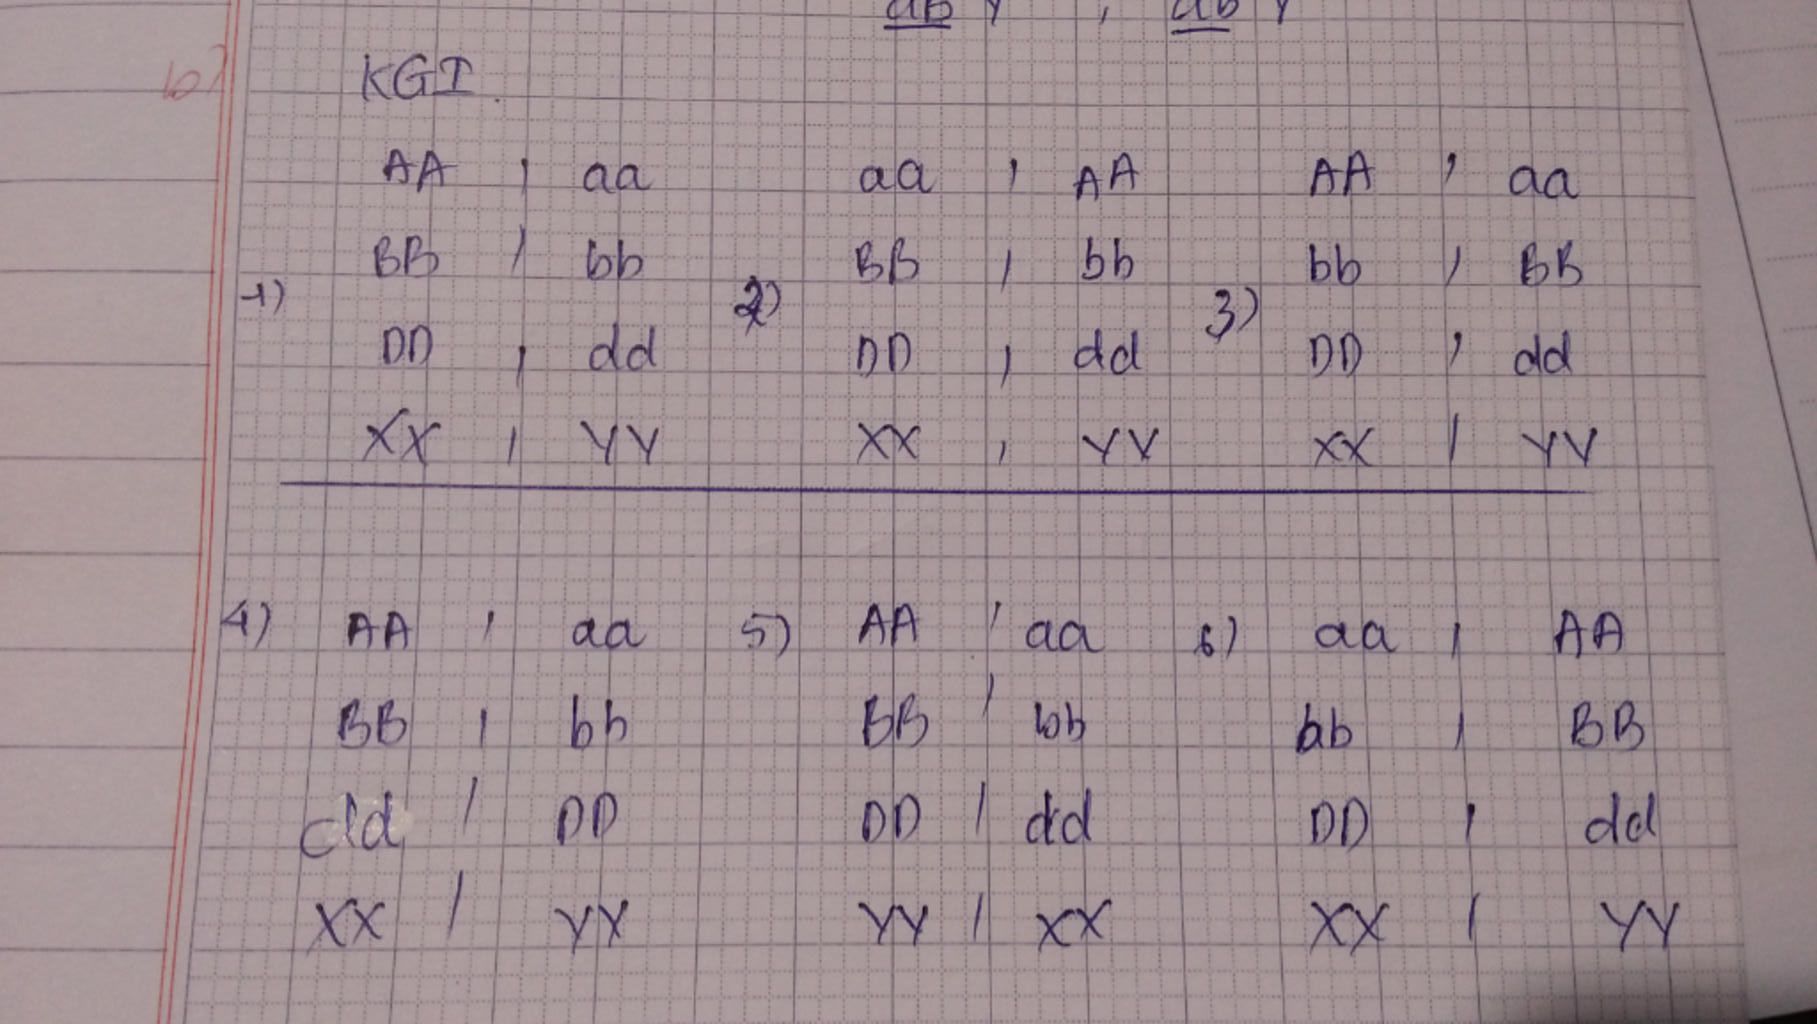 b)
KGI
AA , aa aa , AA AA , aa
BB , bb BB , bb bb , BB
1) 2) 3)
DD , dd DD , dd DD , dd
XX , YY XX , YY XX , YY
4) AA , aa 5) AA , aa 6) aa , AA
BB , bb BB , bb bb , BB
dd , DD DD , dd DD , dd
XX , YY YY , XX XX , YY